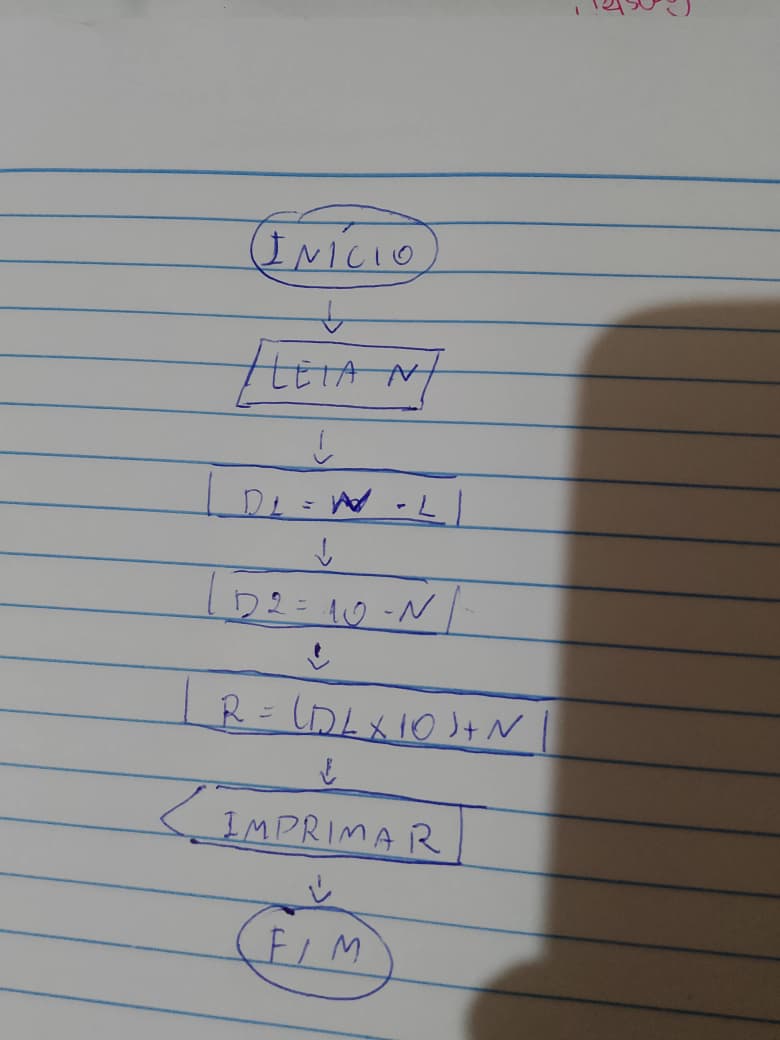 INÍCIO
LEIA N
D1 = N - 1
D2 = 10 - N
R = (D1 x 10) + N
IMPRIMA R
FIM